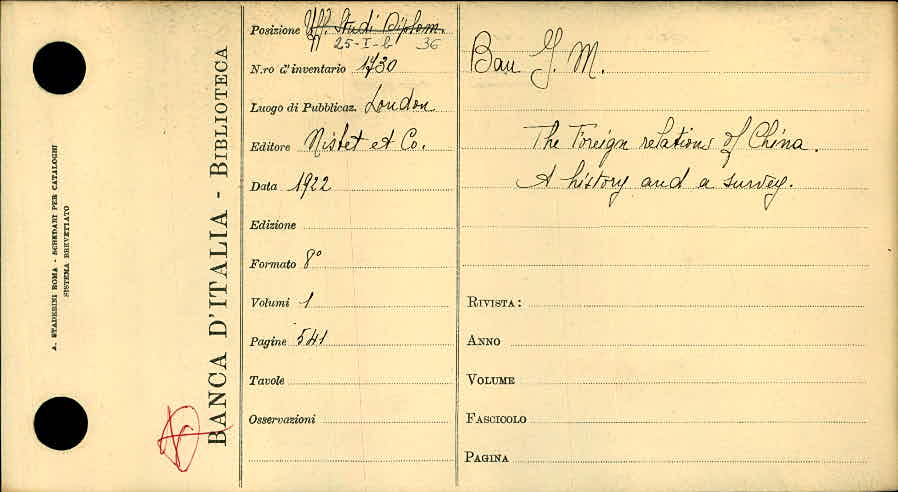 A. STADERINI ROMA - SCHEDARI PER CATALOGHI
SISTEMA BREVETTATO
BANCA D'ITALIA - BIBLIOTECA
Posizione Uff. Studi Diplom.
25-I-b 36
N.ro d'inventario 1730
Luogo di Pubblicaz. London
Editore Nisbet et Co.
Data 1922
Edizione
Formato 8°
Volumi 1
Pagine 541
Tavole
Osservazioni
Bau J. M.
The Foreign relations of China.
A history and a survey.
RIVISTA:
ANNO
VOLUME
FASCICOLO
PAGINA